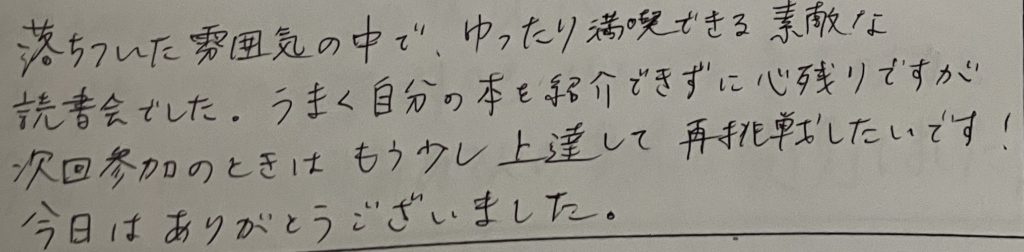 落ちついた雰囲気の中で、ゆったり満喫できる素敵な
読書会でした。うまく自分の本を紹介できずに心残りですが
次回参加のときはもう少し上達して再挑戦したいです!
今日はありがとうございました。